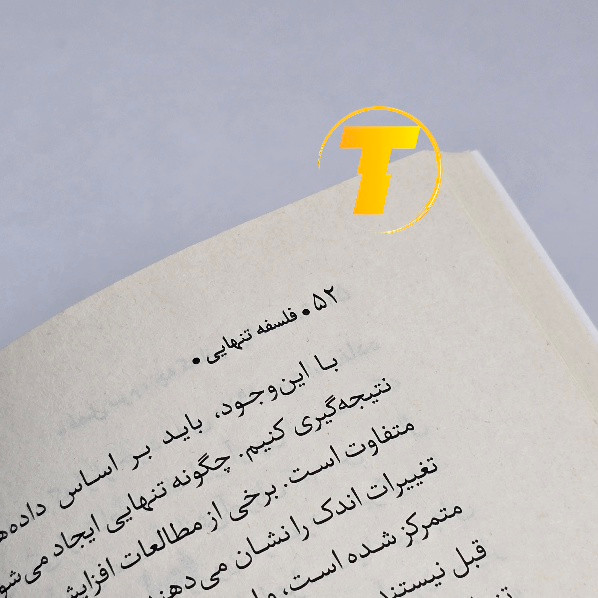 T
۵۲ • فلسفه تنهایی •
با این‌وجود، باید بر اساس
نتیجه‌گیری کنیم. چگونه تنهایی ایجاد می‌شو
متفاوت است. برخی از مطالعات
تغییرات اندک را نشان می‌دهند
متمرکز شده است،
قبل نیستند